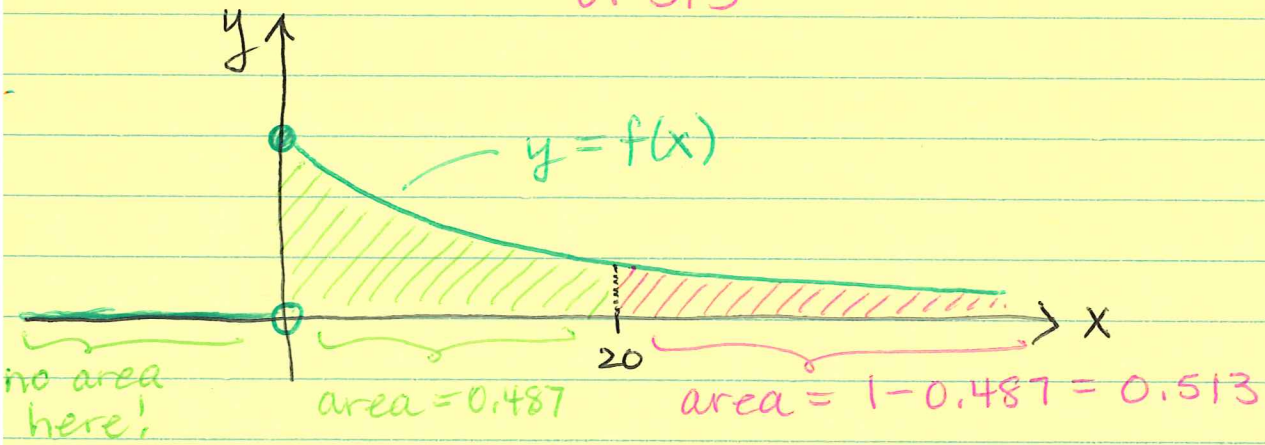 y
y = f(x)
x
20
no area
here!
area = 0.487
area = 1 - 0.487 = 0.513